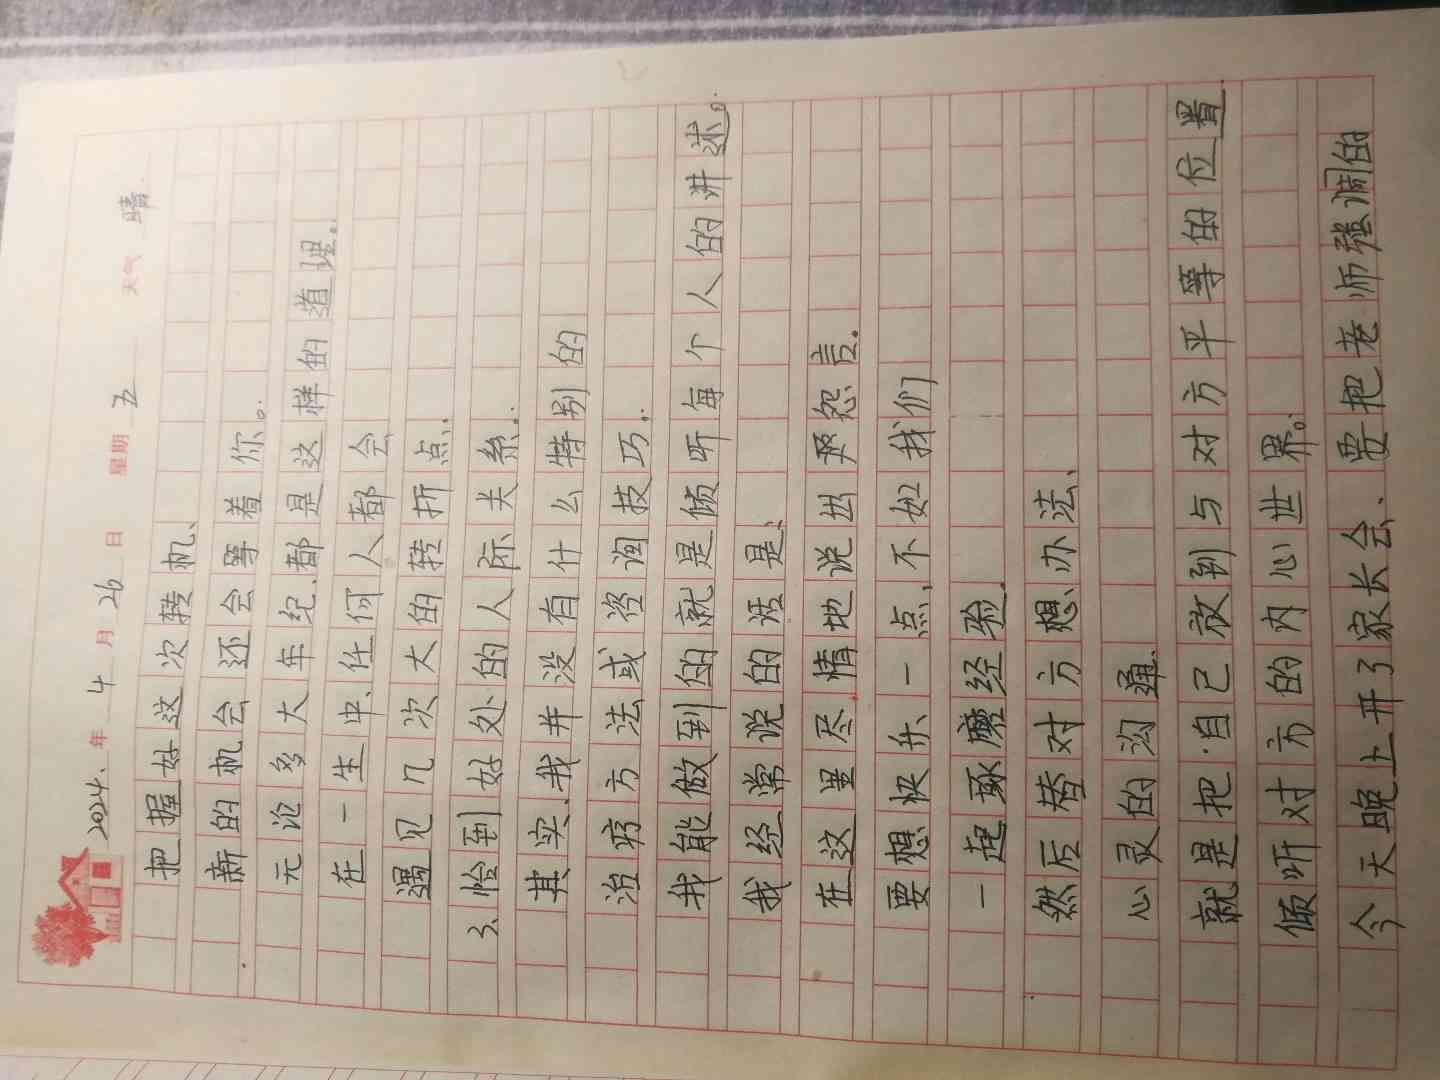 2024、年 4 月 26 日 星期 五 天气 晴.
把握好这次转机、
新的机会还会等着你。
元论多大年纪、都是这样的道理。
在一生中、任何人都会
遇见几次大的转折点、
3、恰到好处的人际关系。
其实、我并没有什么特别的
治疗方法或咨询技巧。
我能做到的就是倾听每个人的讲述。
我经常说的话是、
在这里尽情地说出怨言。
要想快乐一点,不如我们
一起琢磨经验.
然后替对方想办法、
心灵的沟通、
就是把自己放到与对方平等的位置.
倾听对方的内心世界。
今天晚上开了家长会、要把老师强调的